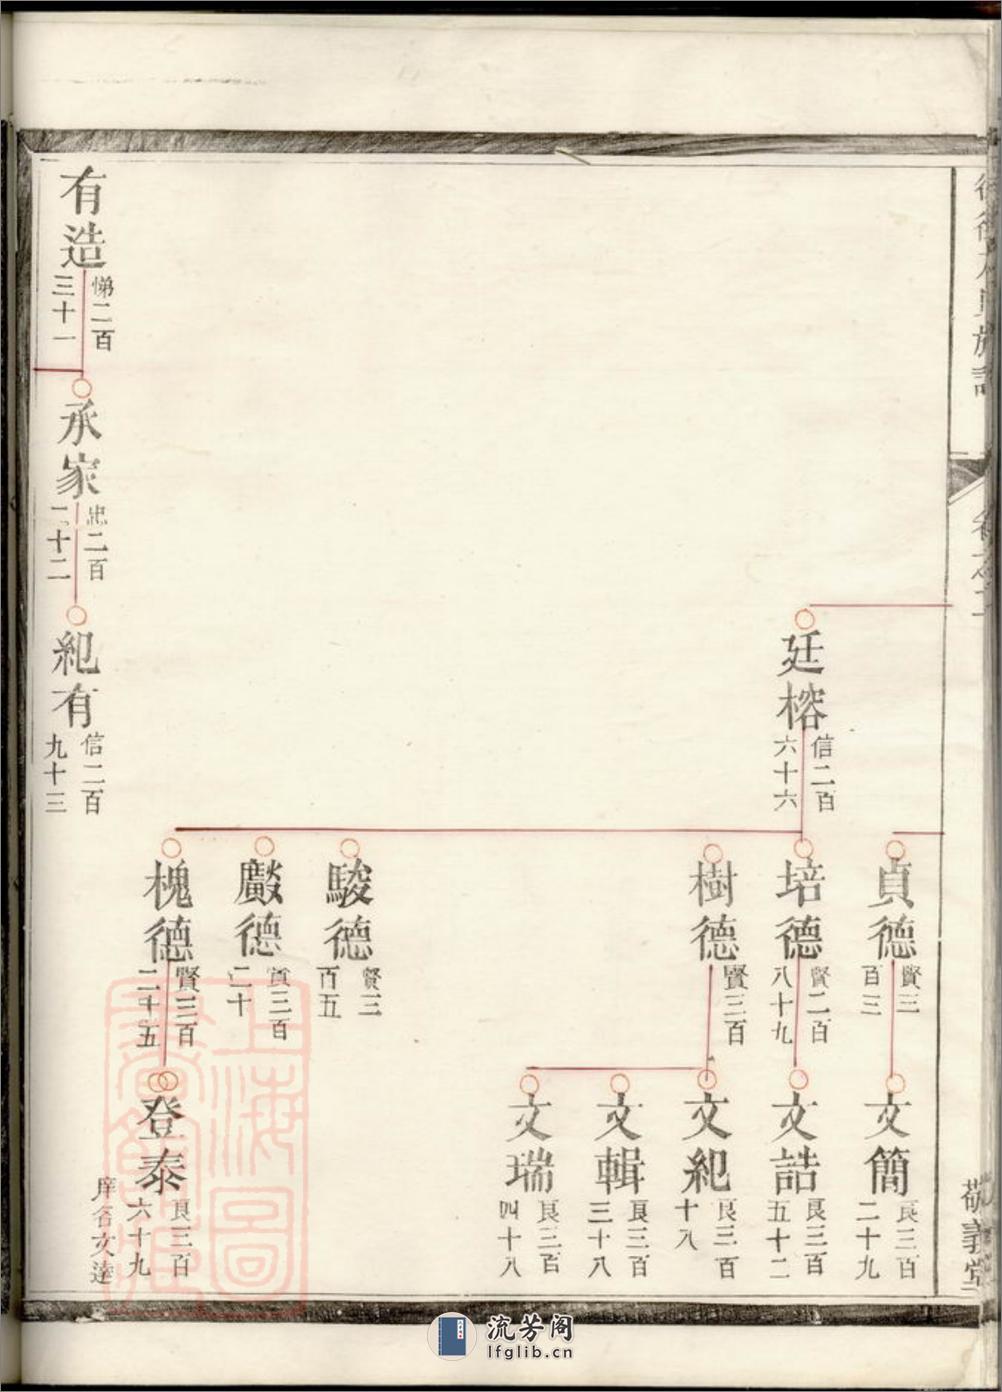 敬義堂
廷榕
信二百
六十六
貞德
賢三
百三
培德
賢二百
八十九
樹德
賢三百
駿德
賢三
百五
厳德
賢三百
二十
槐德
賢三百
二十五
文簡
良三百
二十九
文誥
良三百
五十二
文紀
良三百
十八
文輯
良三百
三十八
文瑞
良三百
四十八
登泰
良三百
六十九
庠名文達
有造
悌二百
三十一
承家
忠二百
二十二
紀有
信二百
九十三
上海圖書館藏
流芳阁
lfglib.cn